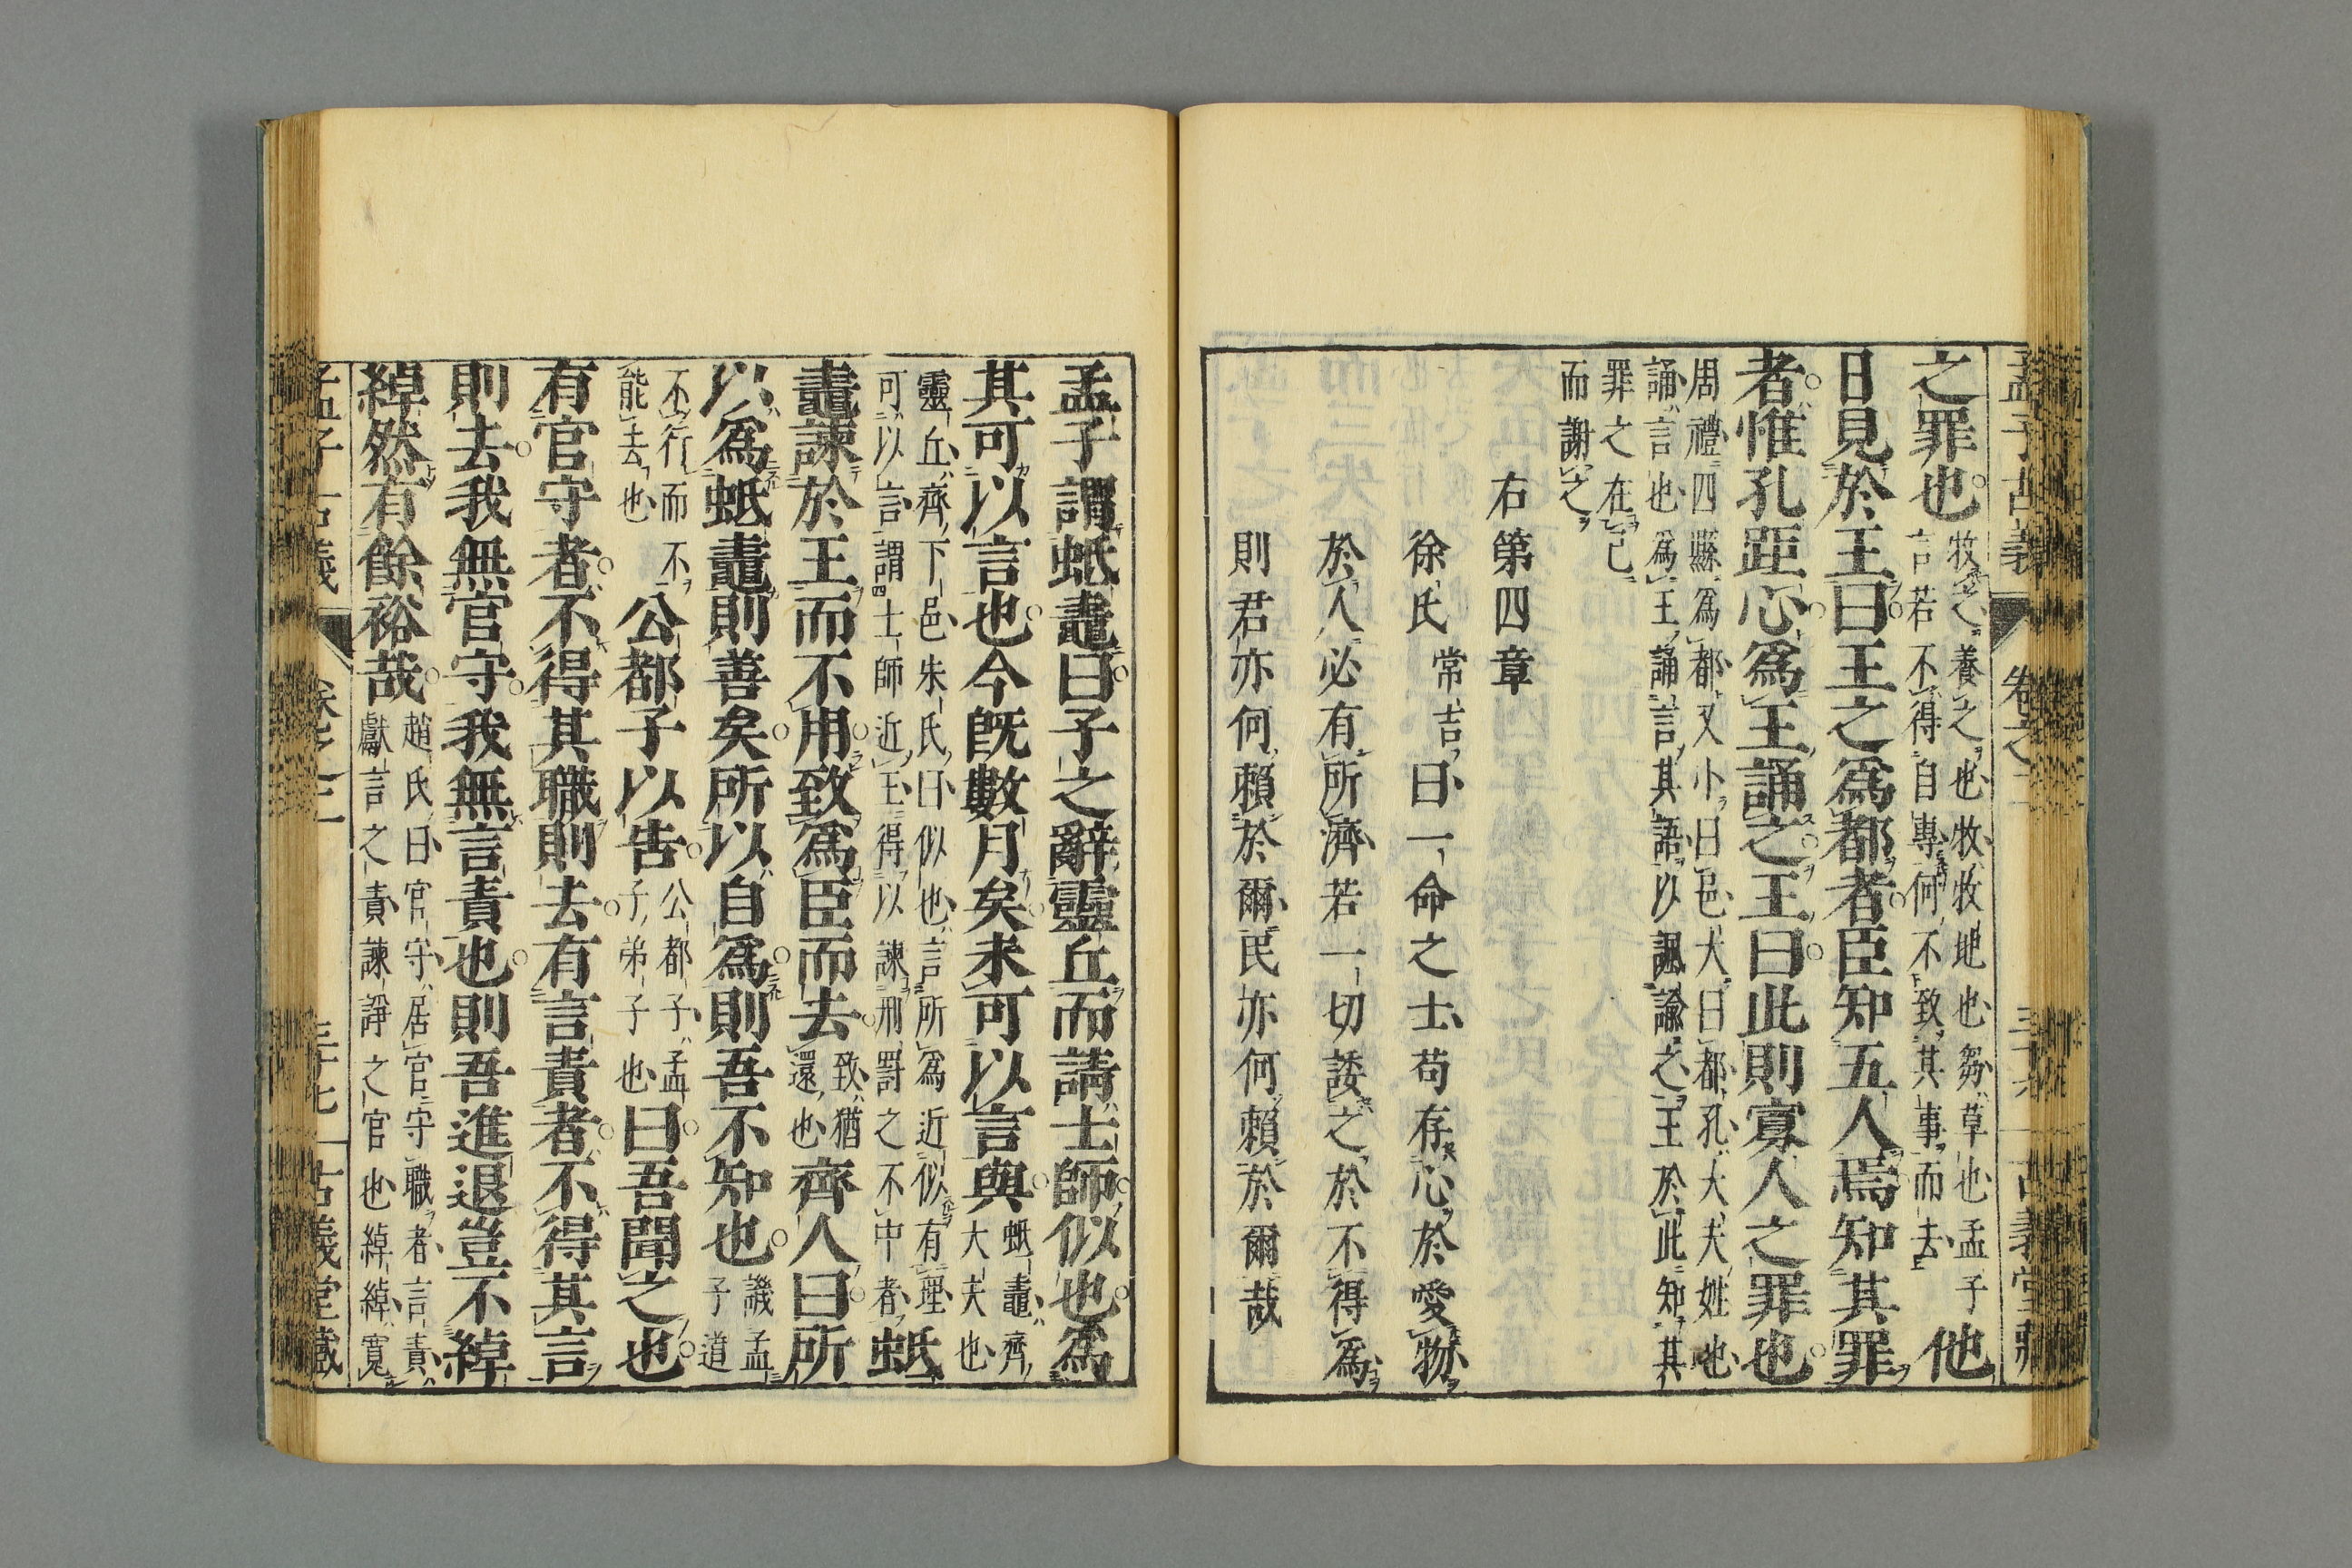 孟子古義 卷之二 古義堂藏
之罪也 牧之養之也牧牧地也芻草也孟子言若不得自專何不致其事而去 他
日見於王曰王之爲都者臣知五人焉知其罪
者惟孔距心爲王誦之王曰此則寡人之罪也
周禮四縣爲都又小曰邑大曰都孔大夫姓也
誦言也爲王誦言其語以諷諭之王於此知其
罪之在己
而謝之
右第四章
徐氏常吉曰一命之士苟存心於愛物
於人必有所濟若一切諉之於不得爲
則君亦何賴於爾民亦何賴於爾哉
孟子謂蚳鼃曰子之辭靈丘而請士師似也爲
其可以言也今旣數月矣未可以言與 蚳鼃齊大夫也
靈丘齊下邑朱氏曰似也言所爲近似有理
可以言謂士師近王得以諫刑罰之不中者 蚳
鼃諫於王而不用致爲臣而去 致猶還也 齊人曰所
以爲蚳鼃則善矣所以自爲則吾不知也 譏孟子道
不行而不能去也 公都子以告 公都子孟子弟子也 曰吾聞之也
有官守者不得其職則去有言責者不得其言
則去我無官守我無言責也則吾進退豈不綽
綽然有餘裕哉 趙氏曰官守居官守職者言責獻言之責諫諍之官也綽綽寬
孟子古義 卷之二 三十七 古義堂藏